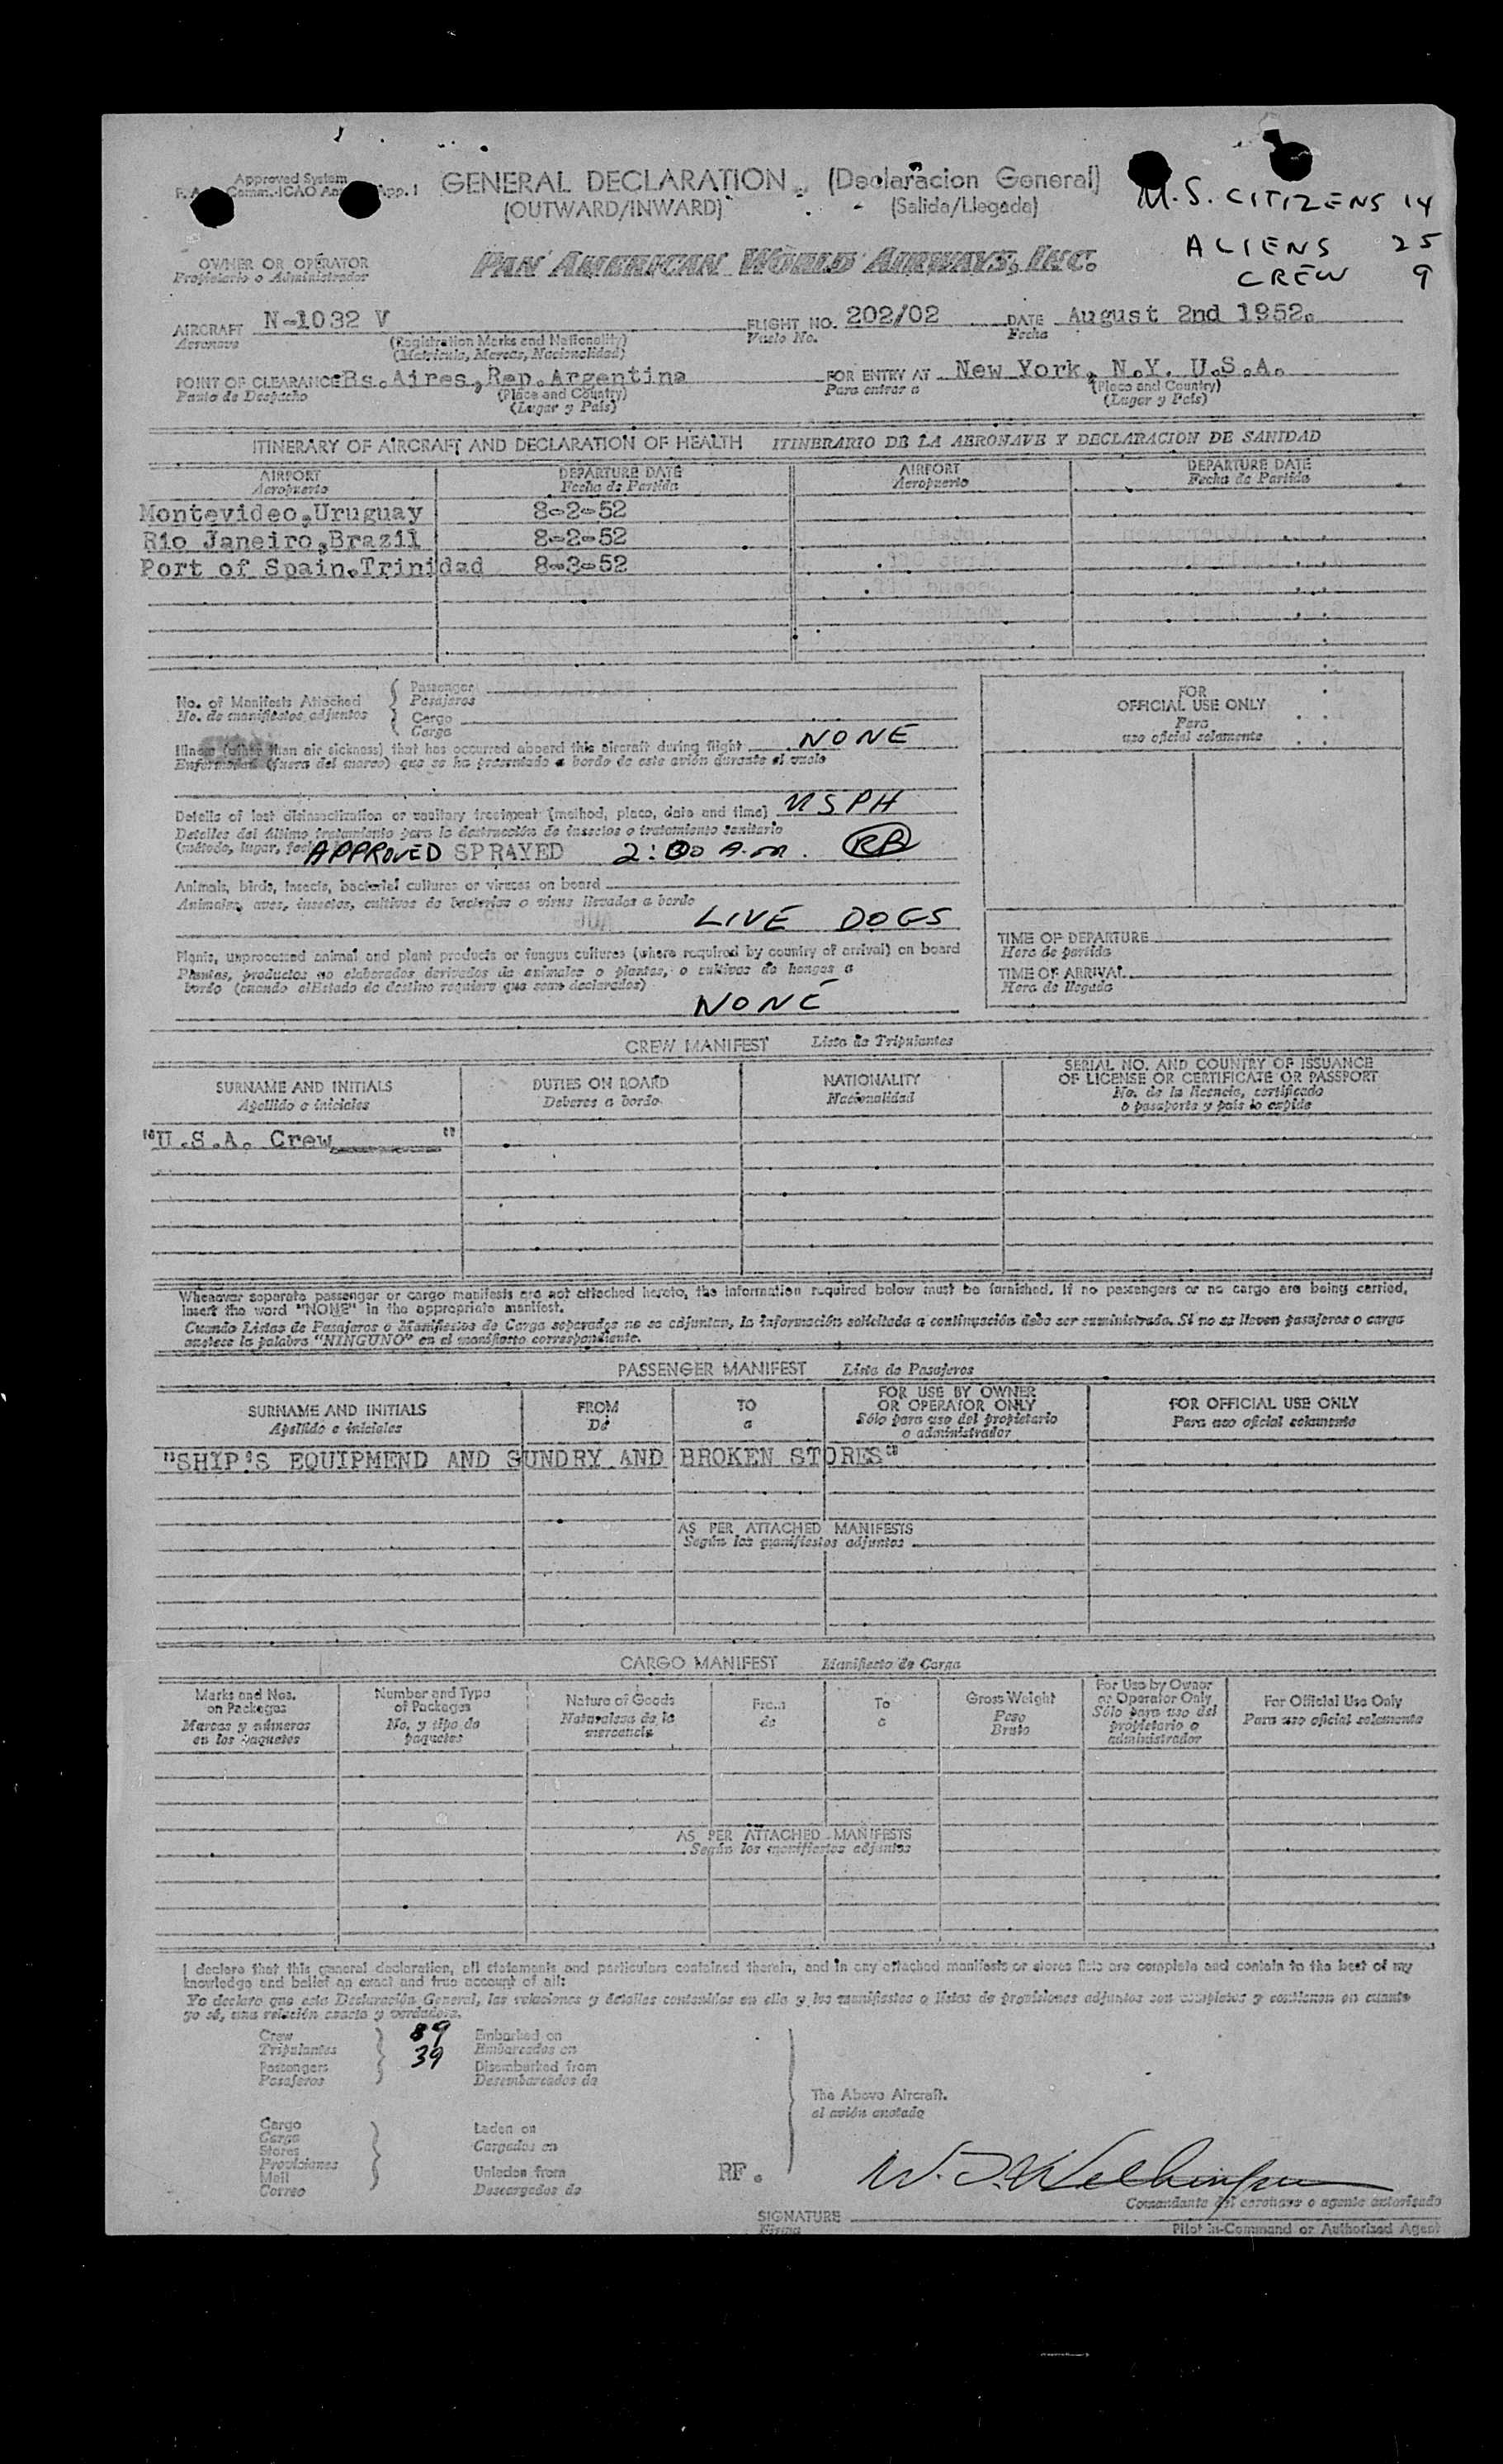 Approved System
GENERAL DECLARATION (Declaracion General)
(OUTWARD/INWARD) (Salida/Llegada)
U.S. CITIZENS 14
ALIENS 25
CREW 9
OWNER OR OPERATOR
Propietario o Administrador
PAN AMERICAN WORLD AIRWAYS, INC.
AIRCRAFT N-1032 V FLIGHT NO. 202/02 DATE August 2nd 1952.
Aeronave (Registration Marks and Nationality) Vuelo No. Fecha
(Matricula, Marcas, Nacionalidad)
POINT OF CLEARANCE Bs.Aires,Rep.Argentina FOR ENTRY AT New York, N.Y. U.S.A.
Punto de Despacho (Place and Country) Para entrar a (Place and Country)
(Lugar y País) (Lugar y País)
ITINERARY OF AIRCRAFT AND DECLARATION OF HEALTH ITINERARIO DE LA AERONAVE Y DECLARACION DE SANIDAD
AIRPORT DEPARTURE DATE AIRPORT DEPARTURE DATE
Aeropuerto Fecha de Partida Aeropuerto Fecha de Partida
Montevideo,Uruguay 8-2-52
Rio Janeiro,Brazil 8-2-52
Port of Spain.Trinidad 8-3-52
No. of Manifests Attached Passenger
No. de manifiestos adjuntos Pasajeros
Cargo
Carga
FOR
OFFICIAL USE ONLY
Para
uso oficial solamente
Illness (other than air sickness) that has occurred aboard this aircraft during flight NONE
Enfermedad (fuera del mareo) que se ha presentado a bordo de este avión durante el vuelo
Details of last disinsectization or sanitary treatment (method, place, date and time) USPH
Detalles del último tratamiento para la destrucción de insectos o tratamiento sanitario
(método, lugar, APPROVED SPRAYED 2:00 A.m. RB
Animals, birds, insects, bacterial cultures or viruses on board
Animales, aves, insectos, cultivos de bacterias o virus llevados a bordo
LIVE DOGS
Plants, unprocessed animal and plant products or fungus cultures (where required by country of arrival) on board
Plantas, productos no elaborados derivados de animales o plantas, o cultivos de hongos a
bordo (cuando el Estado de destino requiera que sean declarados)
NONE
TIME OF DEPARTURE
Hora de partida
TIME OF ARRIVAL
Hora de llegada
CREW MANIFEST Lista de Tripulantes
SURNAME AND INITIALS DUTIES ON BOARD NATIONALITY SERIAL NO. AND COUNTRY OF ISSUANCE
OF LICENSE OR CERTIFICATE OR PASSPORT
Apellido e iniciales Deberes a bordo Nacionalidad No. de la licencia, certificado
o pasaporte y país lo expide
"U.S.A. Crew "
Whenever separate passenger or cargo manifests are not attached hereto, the information required below must be furnished. If no passengers or no cargo are being carried,
insert the word "NONE" in the appropriate manifest.
Cuando Listas de Pasajeros o Manifiestos de Carga separados no se adjuntan, la información solicitada a continuación debe ser suministrada. Si no se llevan pasajeros o carga
anótese la palabra "NINGUNO" en el manifiesto correspondiente.
PASSENGER MANIFEST Lista de Pasajeros
SURNAME AND INITIALS FROM TO FOR USE BY OWNER
OR OPERATOR ONLY FOR OFFICIAL USE ONLY
Apellido e iniciales De a Sólo para uso del propietario
o administrador Para uso oficial solamente
"SHIP'S EQUIPMEND AND SUNDRY AND BROKEN STORES"
AS PER ATTACHED MANIFESTS
Según los manifiestos adjuntos
CARGO MANIFEST Manifiesto de Carga
Marks and Nos.
on Packages
Marcas y números
en los paquetes
Number and Type
of Packages
No. y tipo de
paquetes
Nature of Goods
Naturaleza de la
mercancia
From
de
To
a
Gross Weight
Peso
Bruto
For Use by Owner
or Operator Only
Sólo para uso del
propietario o
administrador
For Official Use Only
Para uso oficial solamente
AS PER ATTACHED MANIFESTS
Según los manifiestos adjuntos
I declare that this general declaration, all statements and particulars contained therein, and in any attached manifests or stores lists are complete and contain to the best of my
knowledge and belief an exact and true account of all:
Yo declaro que esta Declaración General, las relaciones y detalles contenidos en ella y los manifiestos o listas de provisiones adjuntos son completos y contienen en cuanto
yo sé, una relación exacta y verdadera.
Crew 9 Embarked on
Tripulantes Embarcados en
Passengers 39 Disembarked from
Pasajeros Desembarcados de
The Above Aircraft.
el avión anotado
Cargo
Carga
Stores
Provisiones
Mail
Correo
Laden on
Cargados en
Unladen from
Descargados de
RF.
SIGNATURE
Firma
Comandante del aeronave o agente autorizado
Pilot in-Command or Authorized Agent